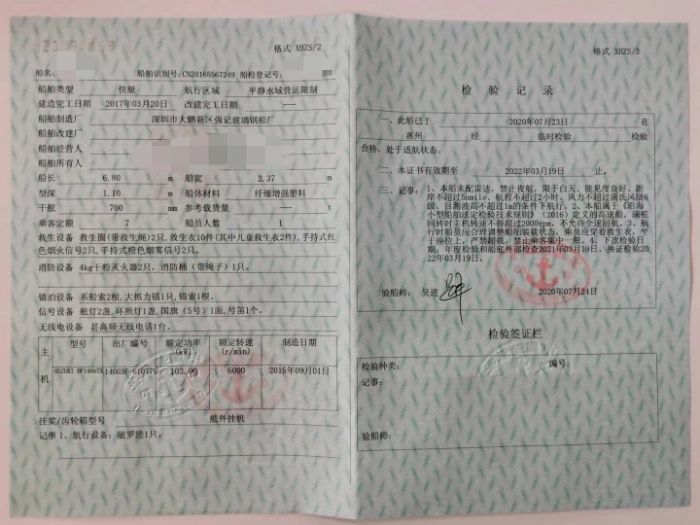 格式 XHZS/2
船名
船舶识别号:CN20165567249
船检登记号:
船舶类型 快艇 航行区域 平静水域营运限制
建造完工日期 2017年03月20日 改建完工日期 ——
船舶制造厂 深圳市大鹏新区强记玻璃钢船厂
船舶改建厂
船舶经营人
船舶所有人
船长 6.80 m 船宽 2.37 m
型深 1.10 m 船体材料 纤维增强塑料
干舷 700 mm 参考载货量 —— t
乘客定额 7 船员人数 1
救生设备 救生圈(带救生绳)2只, 救生衣10件(其中儿童救生衣2件),手持式红
色烟火信号2只,手持式橙色烟雾信号2只。
消防设备 4kg干粉灭火器2只。消防桶(带绳子)1只。
锚泊设备 系船索2根,大抓力锚1只,锚索1根。
信号设备 舷灯2盏,环照灯1盏,国旗(5号)1面,号笛1个。
无线电设备 甚高频无线电话1台。
主机
型号 出厂编号 额定功率(kW) 额定转速(r/min) 制造日期
103.00 6000 2016年09月01日
挂桨/齿轮箱型号 舷外挂机
记事 1、航行设备:磁罗经1只。
格式 XHZS/3
检验记录
一、此船已于 2020年07月23日 在
惠州 经 临时检验 检验
合格,处于适航状态。
二、本证书有效期至 2022年03月19日 止。
三、记事: 1、本船未配雷达,禁止夜航,限于白天、能见度良好、距
岸不超过5nmile、航程不超过2小时、风力不超过蒲氏风级6
级、目测波高不超过1m的条件下航行。2、本船属于《沿海
小型船舶法定检验技术规则》(2016)定义的高速船,满舵
回转时主机转速不得超过2000rpm,不允许全速回航。3、航
行时船员应合理调整船舶装载状态,乘员应穿着救生衣,坐
于座位上,严禁超载,禁止乘客集中一舷。4、下次检验日
期,年度检验和船底外部检查2021年03月19日。换证检验20
22年03月19日。
验船师: 吴进
2020年07月24日
检验签证栏
检验种类: 编号:
记事:
验船师: